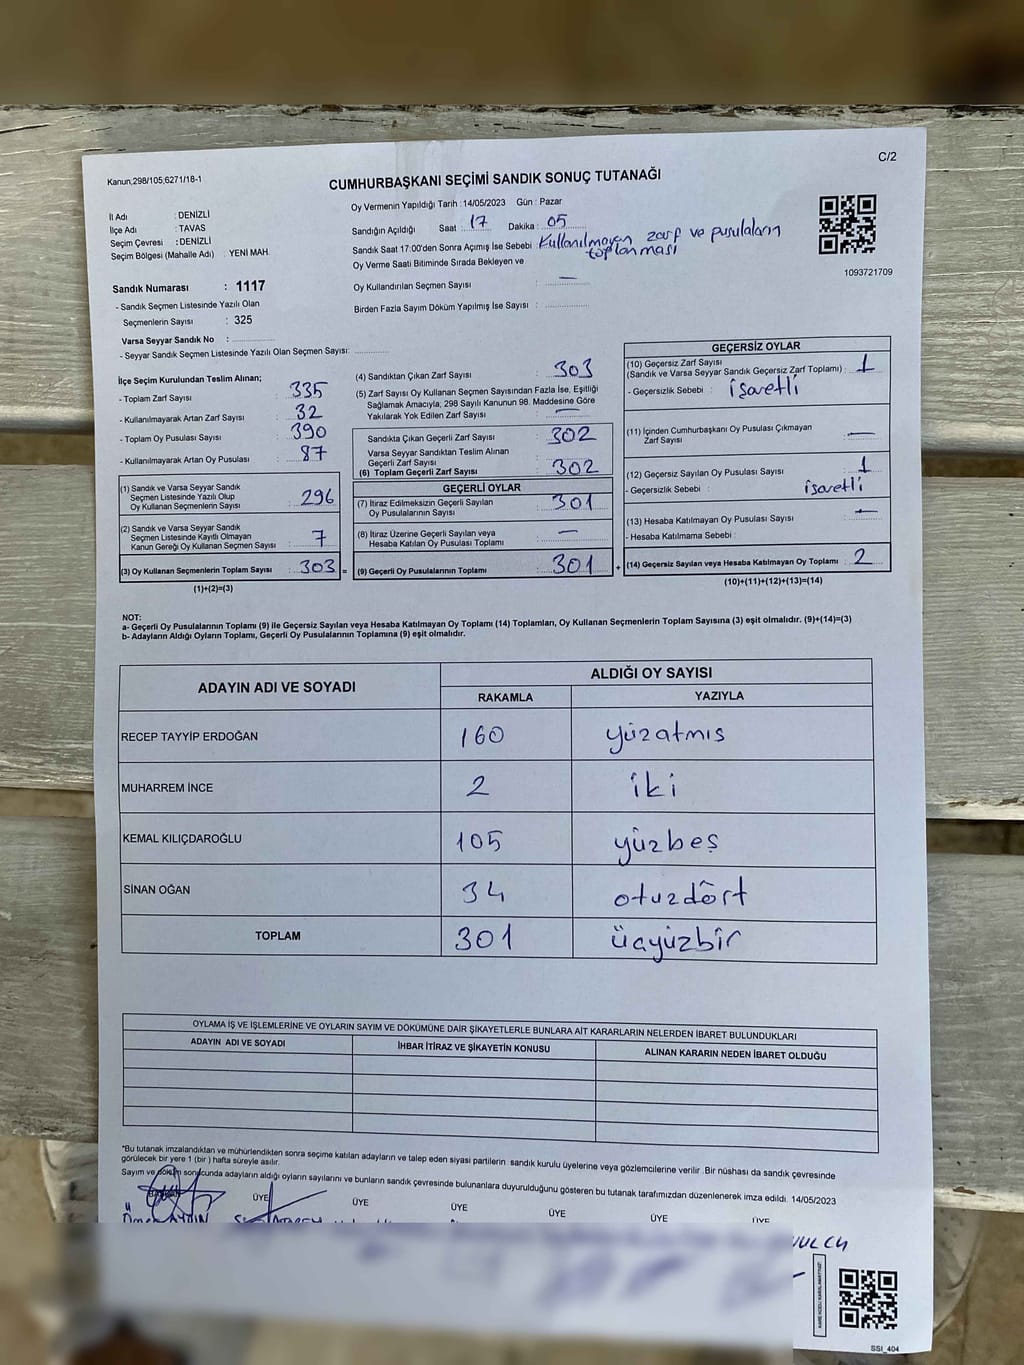 C/2
Kanun,298/105,6271/18-1
CUMHURBAŞKANI SEÇİMİ SANDIK SONUÇ TUTANAĞI
İl Adı : DENİZLİ
İlçe Adı : TAVAS
Seçim Çevresi : DENİZLİ
Seçim Bölgesi (Mahalle Adı) : YENİ MAH
Oy Vermenin Yapıldığı Tarih :14/05/2023 Gün : Pazar
Sandığın Açıldığı Saat : 17 Dakika : 05
Sandık Saat 17:00'den Sonra Açımış İse Sebebi : Kullanılmayan zarf ve pusulaların
toplanması
Oy Verme Saati Bitiminde Sırada Bekleyen ve
Oy Kullandırılan Seçmen Sayısı : —
Birden Fazla Sayım Döküm Yapılmış İse Sayısı :
1093721709
Sandık Numarası : 1117
- Sandık Seçmen Listesinde Yazılı Olan
Seçmenlerin Sayısı : 325
Varsa Seyyar Sandık No :
- Seyyar Sandık Seçmen Listesinde Yazılı Olan Seçmen Sayısı:
İlçe Seçim Kurulundan Teslim Alınan;
- Toplam Zarf Sayısı : 335
- Kullanılmayarak Artan Zarf Sayısı : 32
- Toplam Oy Pusulası Sayısı : 390
- Kullanılmayarak Artan Oy Pusulası : 87
(1) Sandık ve Varsa Seyyar Sandık
Seçmen Listesinde Yazılı Olup
Oy Kullanan Seçmenlerin Sayısı : 296
(2) Sandık ve Varsa Seyyar Sandık
Seçmen Listesinde Kayıtlı Olmayan
Kanun Gereği Oy Kullanan Seçmen Sayısı : 7
(3) Oy Kullanan Seçmenlerin Toplam Sayısı : 303 =
(1)+(2)=(3)
(4) Sandıktan Çıkan Zarf Sayısı : 303
(5) Zarf Sayısı Oy Kullanan Seçmen Sayısından Fazla İse, Eşitliği
Sağlamak Amacıyla, 298 Sayılı Kanunun 98. Maddesine Göre
Yakılarak Yok Edilen Zarf Sayısı : —
Sandıkta Çıkan Geçerli Zarf Sayısı : 302
Varsa Seyyar Sandıktan Teslim Alınan
Geçerli Zarf Sayısı :
(6) Toplam Geçerli Zarf Sayısı : 302
GEÇERLİ OYLAR
(7) İtiraz Edilmeksizin Geçerli Sayılan
Oy Pusulalarının Sayısı : 301
(8) İtiraz Üzerine Geçerli Sayılan veya
Hesaba Katılan Oy Pusulası Toplamı : —
(9) Geçerli Oy Pusulalarının Toplamı : 301 +
GEÇERSİZ OYLAR
(10) Geçersiz Zarf Sayısı
(Sandık ve Varsa Seyyar Sandık Geçersiz Zarf Toplamı) : 1
- Geçersizlik Sebebi : işaretli
(11) İçinden Cumhurbaşkanı Oy Pusulası Çıkmayan
Zarf Sayısı : —
(12) Geçersiz Sayılan Oy Pusulası Sayısı : 1
- Geçersizlik Sebebi : işaretli
(13) Hesaba Katılmayan Oy Pusulası Sayısı : —
- Hesaba Katılmama Sebebi :
(14) Geçersiz Sayılan veya Hesaba Katılmayan Oy Toplamı : 2
(10)+(11)+(12)+(13)=(14)
NOT:
a- Geçerli Oy Pusulalarının Toplamı (9) ile Geçersiz Sayılan veya Hesaba Katılmayan Oy Toplamı (14) Toplamları, Oy Kullanan Seçmenlerin Toplam Sayısına (3) eşit olmalıdır. (9)+(14)=(3)
b- Adayların Aldığı Oyların Toplamı, Geçerli Oy Pusulalarının Toplamına (9) eşit olmalıdır.
ADAYIN ADI VE SOYADI
ALDIĞI OY SAYISI
RAKAMLA YAZIYLA
RECEP TAYYİP ERDOĞAN 160 yüzatmıs
MUHARREM İNCE 2 iki
KEMAL KILIÇDAROĞLU 105 yüzbeş
SİNAN OĞAN 34 otuzdört
TOPLAM 301 üçyüzbir
OYLAMA İŞ VE İŞLEMLERİNE VE OYLARIN SAYIM VE DÖKÜMÜNE DAİR ŞİKAYETLERLE BUNLARA AİT KARARLARIN NELERDEN İBARET BULUNDUKLARI
ADAYIN ADI VE SOYADI İHBAR İTİRAZ VE ŞİKAYETİN KONUSU ALINAN KARARIN NEDEN İBARET OLDUĞU
*Bu tutanak imzalandıktan ve mühürlendikten sonra seçime katılan adayların ve talep eden siyasi partilerin sandık kurulu üyelerine veya gözlemcilerine verilir .Bir nüshası da sandık çevresinde
görülecek bir yere 1 (bir ) hafta süreyle asılır.
Sayım ve döküm sonucunda adayların aldığı oyların sayılarını ve bunların sandık çevresinde bulunanlara duyurulduğunu gösteren bu tutanak tarafımızdan düzenlenerek imza edildi. 14/05/2023
ÜYE ÜYE ÜYE ÜYE ÜYE ÜYE
AYDIN
SSİ_404